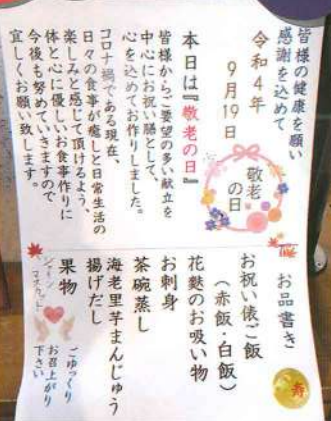 皆様の健康を願い
感謝を込めて
令和4年
9月19日
敬老
の日
本日は『敬老の日』
皆様からご要望の多い献立を
中心にお祝い膳として、
心を込めてお作りしました。
コロナ禍である現在、
日々の食事が癒しと日常生活の
楽しみと感じて頂けるよう、
体と心に優しいお食事作りに
今後も努めていきますので
宜しくお願い致します。
お品書き
寿
お祝い俵ご飯
(赤飯・白飯)
花麩のお吸い物
お刺身
茶碗蒸し
海老里芋まんじゅう
揚げだし
果物
シャイン
マスカット
ごゆっくり
お召上がり
下さい